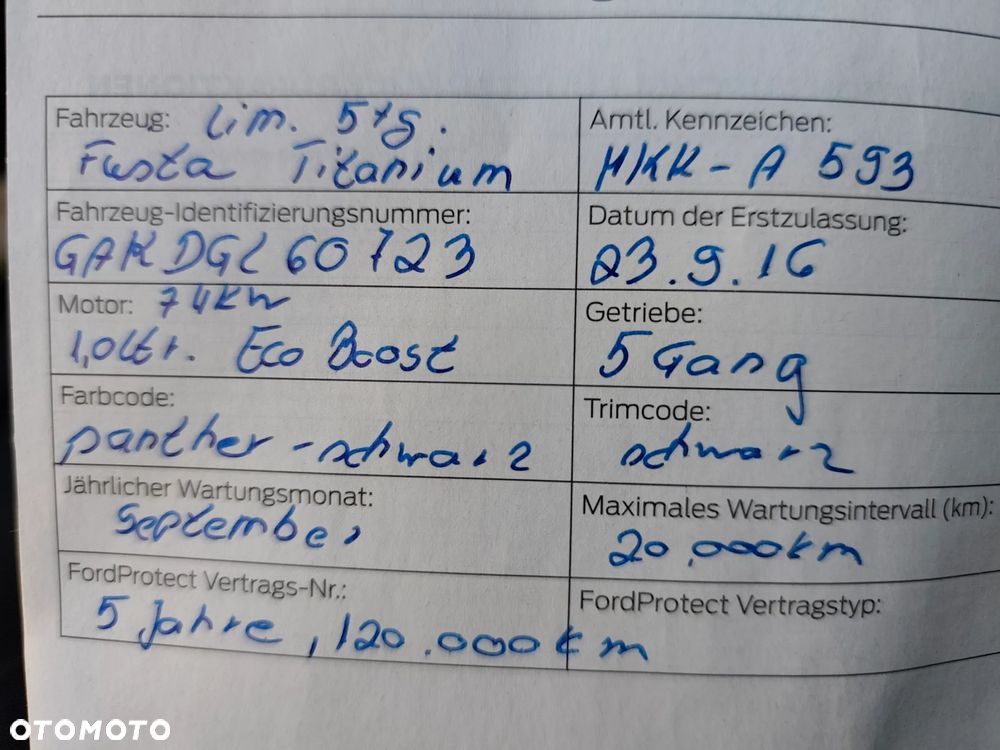 Fahrzeug: Lim. 5tg.
Fiesta Titanium
Amtl. Kennzeichen:
MKK - A 593
Fahrzeug-Identifizierungsnummer:
GAKDGL60723
Datum der Erstzulassung:
23.9.16
Motor: 74kW
1,0ltr. Eco Boost
Getriebe:
5 Gang
Farbcode:
panther-schwarz
Trimcode:
schwarz
Jährlicher Wartungsmonat:
September
Maximales Wartungsintervall (km):
20.000km
FordProtect Vertrags-Nr.:
5 Jahre, 120.000km
FordProtect Vertragstyp:
OTOMOTO